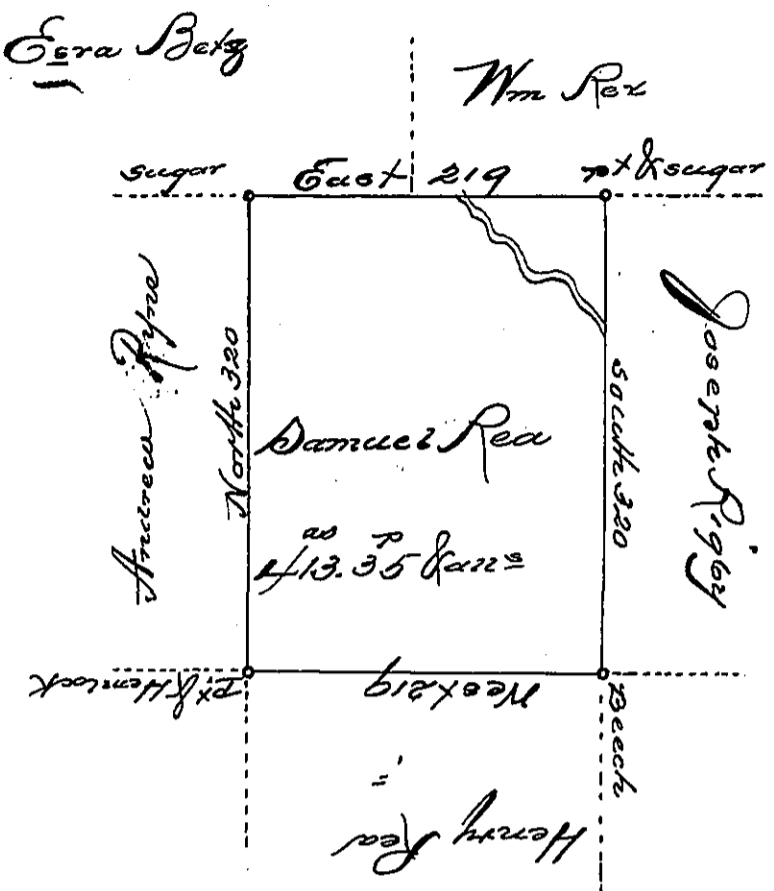 Esra Betz
Wm Rex
sugar
East 219
pt & sugar
Andrew Ryne
North 320
Samuel Rea
as p
413.35 & alls
South 320
Joseph Rigby
pt & Hemlock
West 219
Beech
Henry Rea